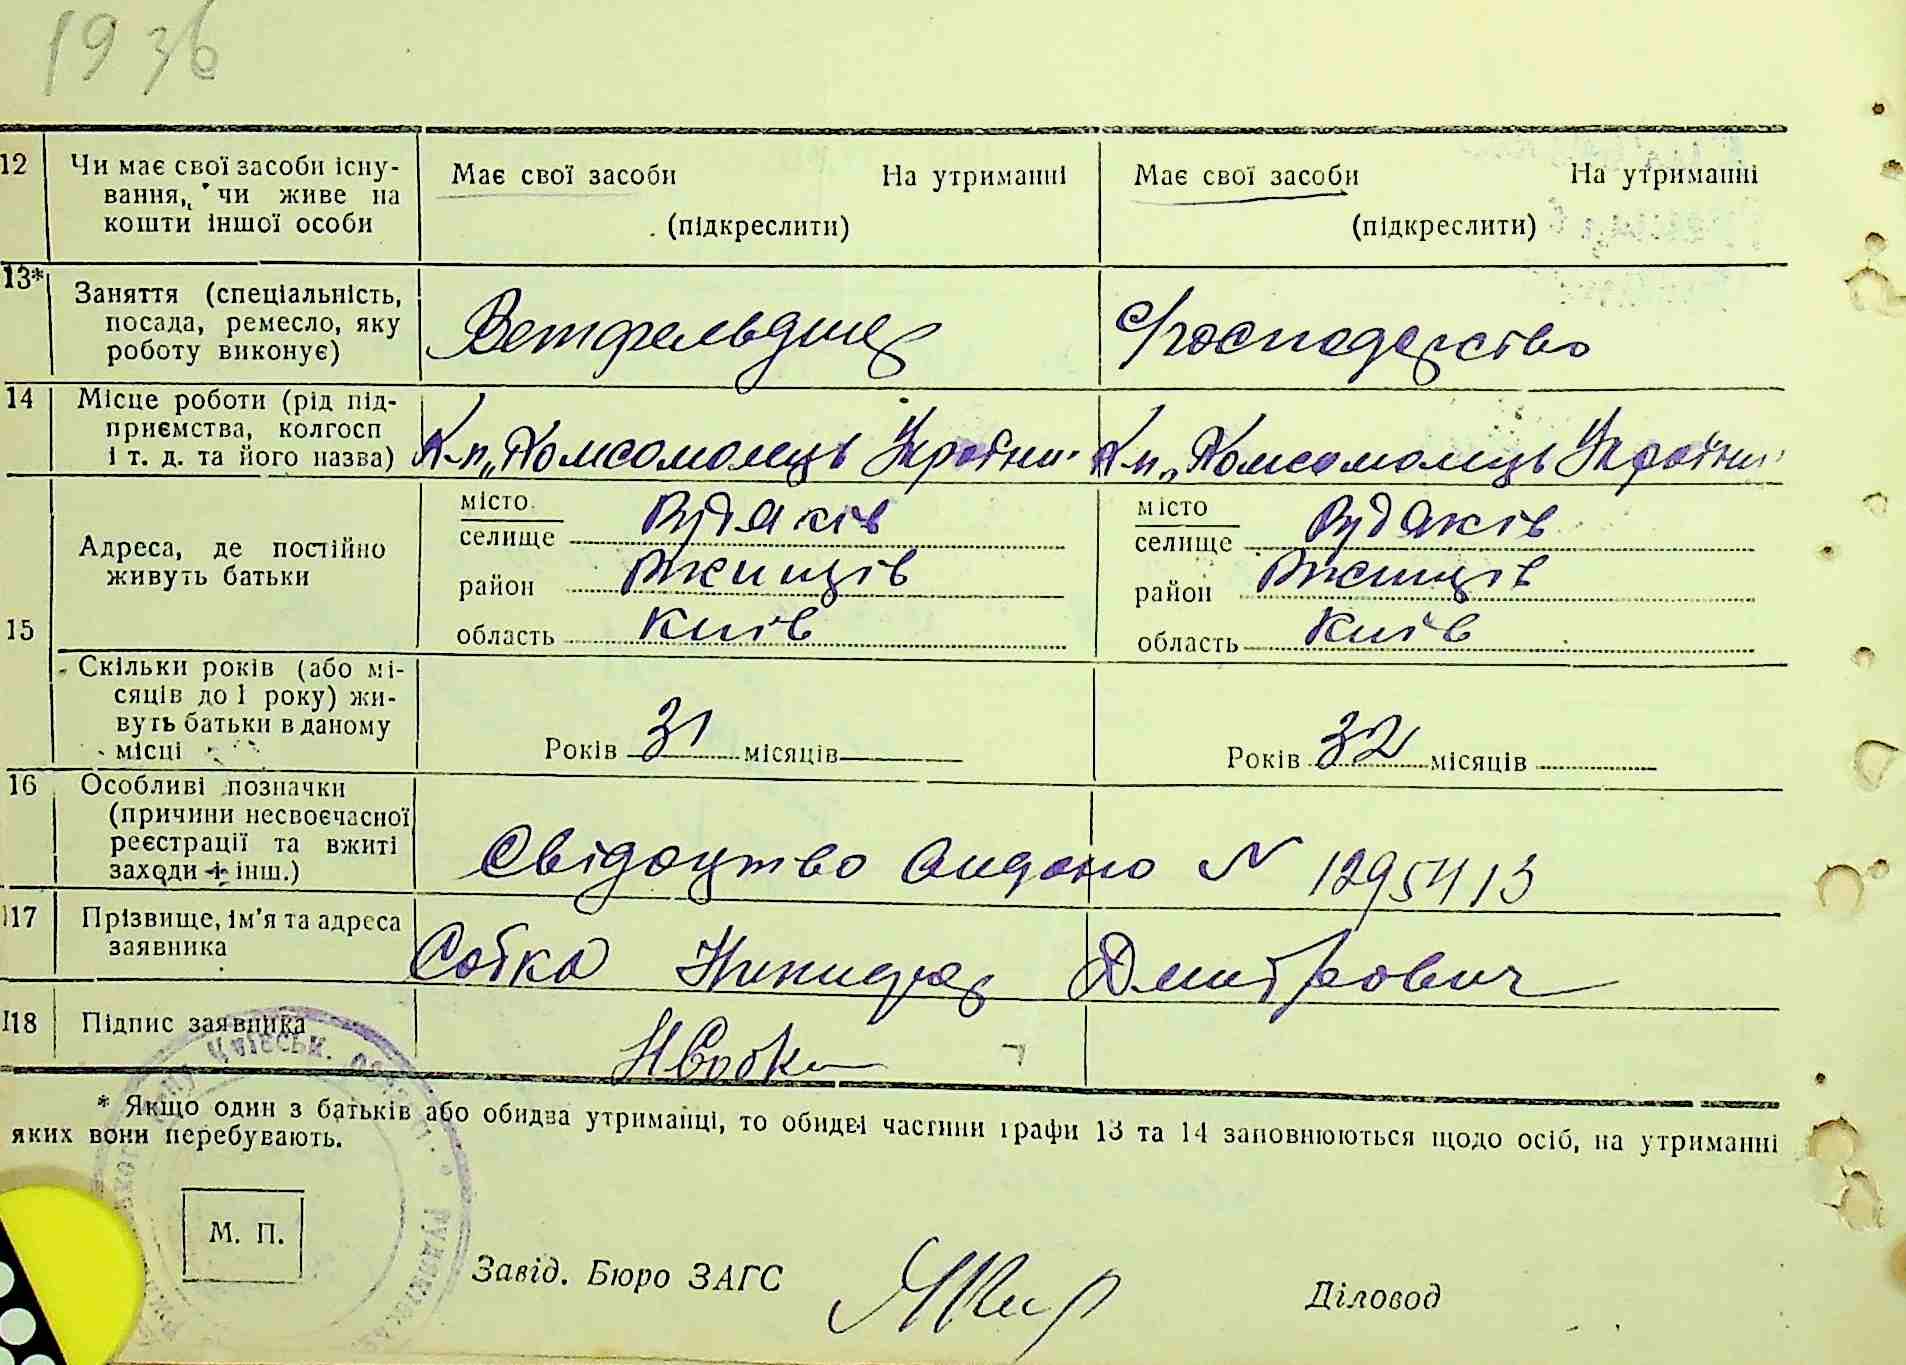 1936
12 Чи має свої засоби існу- Має свої засоби На утриманні Має свої засоби На утриманні
вання, чи живе на
кошти іншої особи (підкреслити) (підкреслити)
13* Заняття (спеціальність, Ветфельдшер Господарство
посада, ремесло, яку
роботу виконує)
14 Місце роботи (рід під-
приємства, колгосп
і т. д. та його назва) К-п „Комсомолець України" К-п „Комсомолець України"
Адреса, де постійно
живуть батьки
місто Рудяків місто Рудяків
селище селище
район Ржищів район Ржищів
область Київ область Київ
15 Скільки років (або мі-
сяців до 1 року) жи-
вуть батьки в даному
місці Років 31 місяців Років 32 місяців
16 Особливі позначки
(причини несвоєчасної
реєстрації та вжиті
заходи і інш.) Свідоцтво видано N 1295413
17 Прізвище, ім'я та адреса
заявника Собка Никифор Дмитрович
18 Підпис заявника НСобка
* Якщо один з батьків або обидва утриманці, то обидві частини графи 13 та 14 заповнюються щодо осіб, на утриманні
яких вони перебувають.
М. П.
Завід. Бюро ЗАГС Діловод